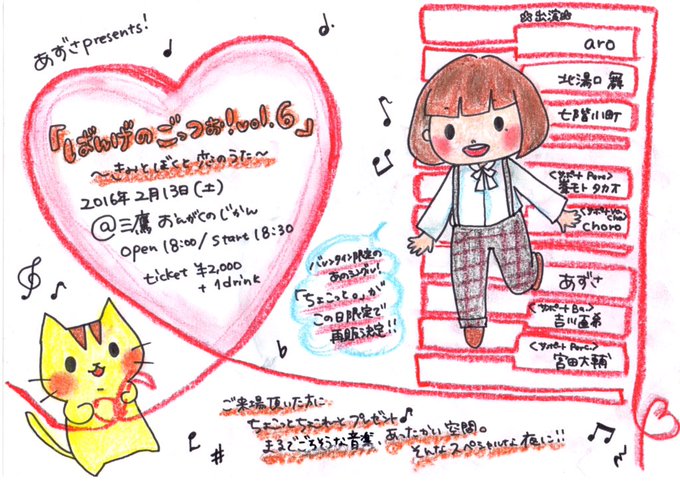 あずさpresents!
「ばんげのごっつお!vol.6」
～きみとぼくと恋のうた～
2016年2月13日(土)
@三鷹 おんがくのじかん
open 18:00/start 18:30
ticket ¥2,000
+1drink
バレンタイン限定の
あのシングル!
「ちょこっと。」が
この日限定で
再販決定!!
出演
aro
北湯口 舞
七階小町
<サポート Perc>
タカオ
choro
あずさ
<サポート Ba.>
吉川直希
<サポート Perc.>
宮田大輔
ご来場頂いた方に
ちょこっとちょこれーとプレゼント♪
まるでごちそうな音楽 あったかい空間。
そんなスペシャルな夜に!!